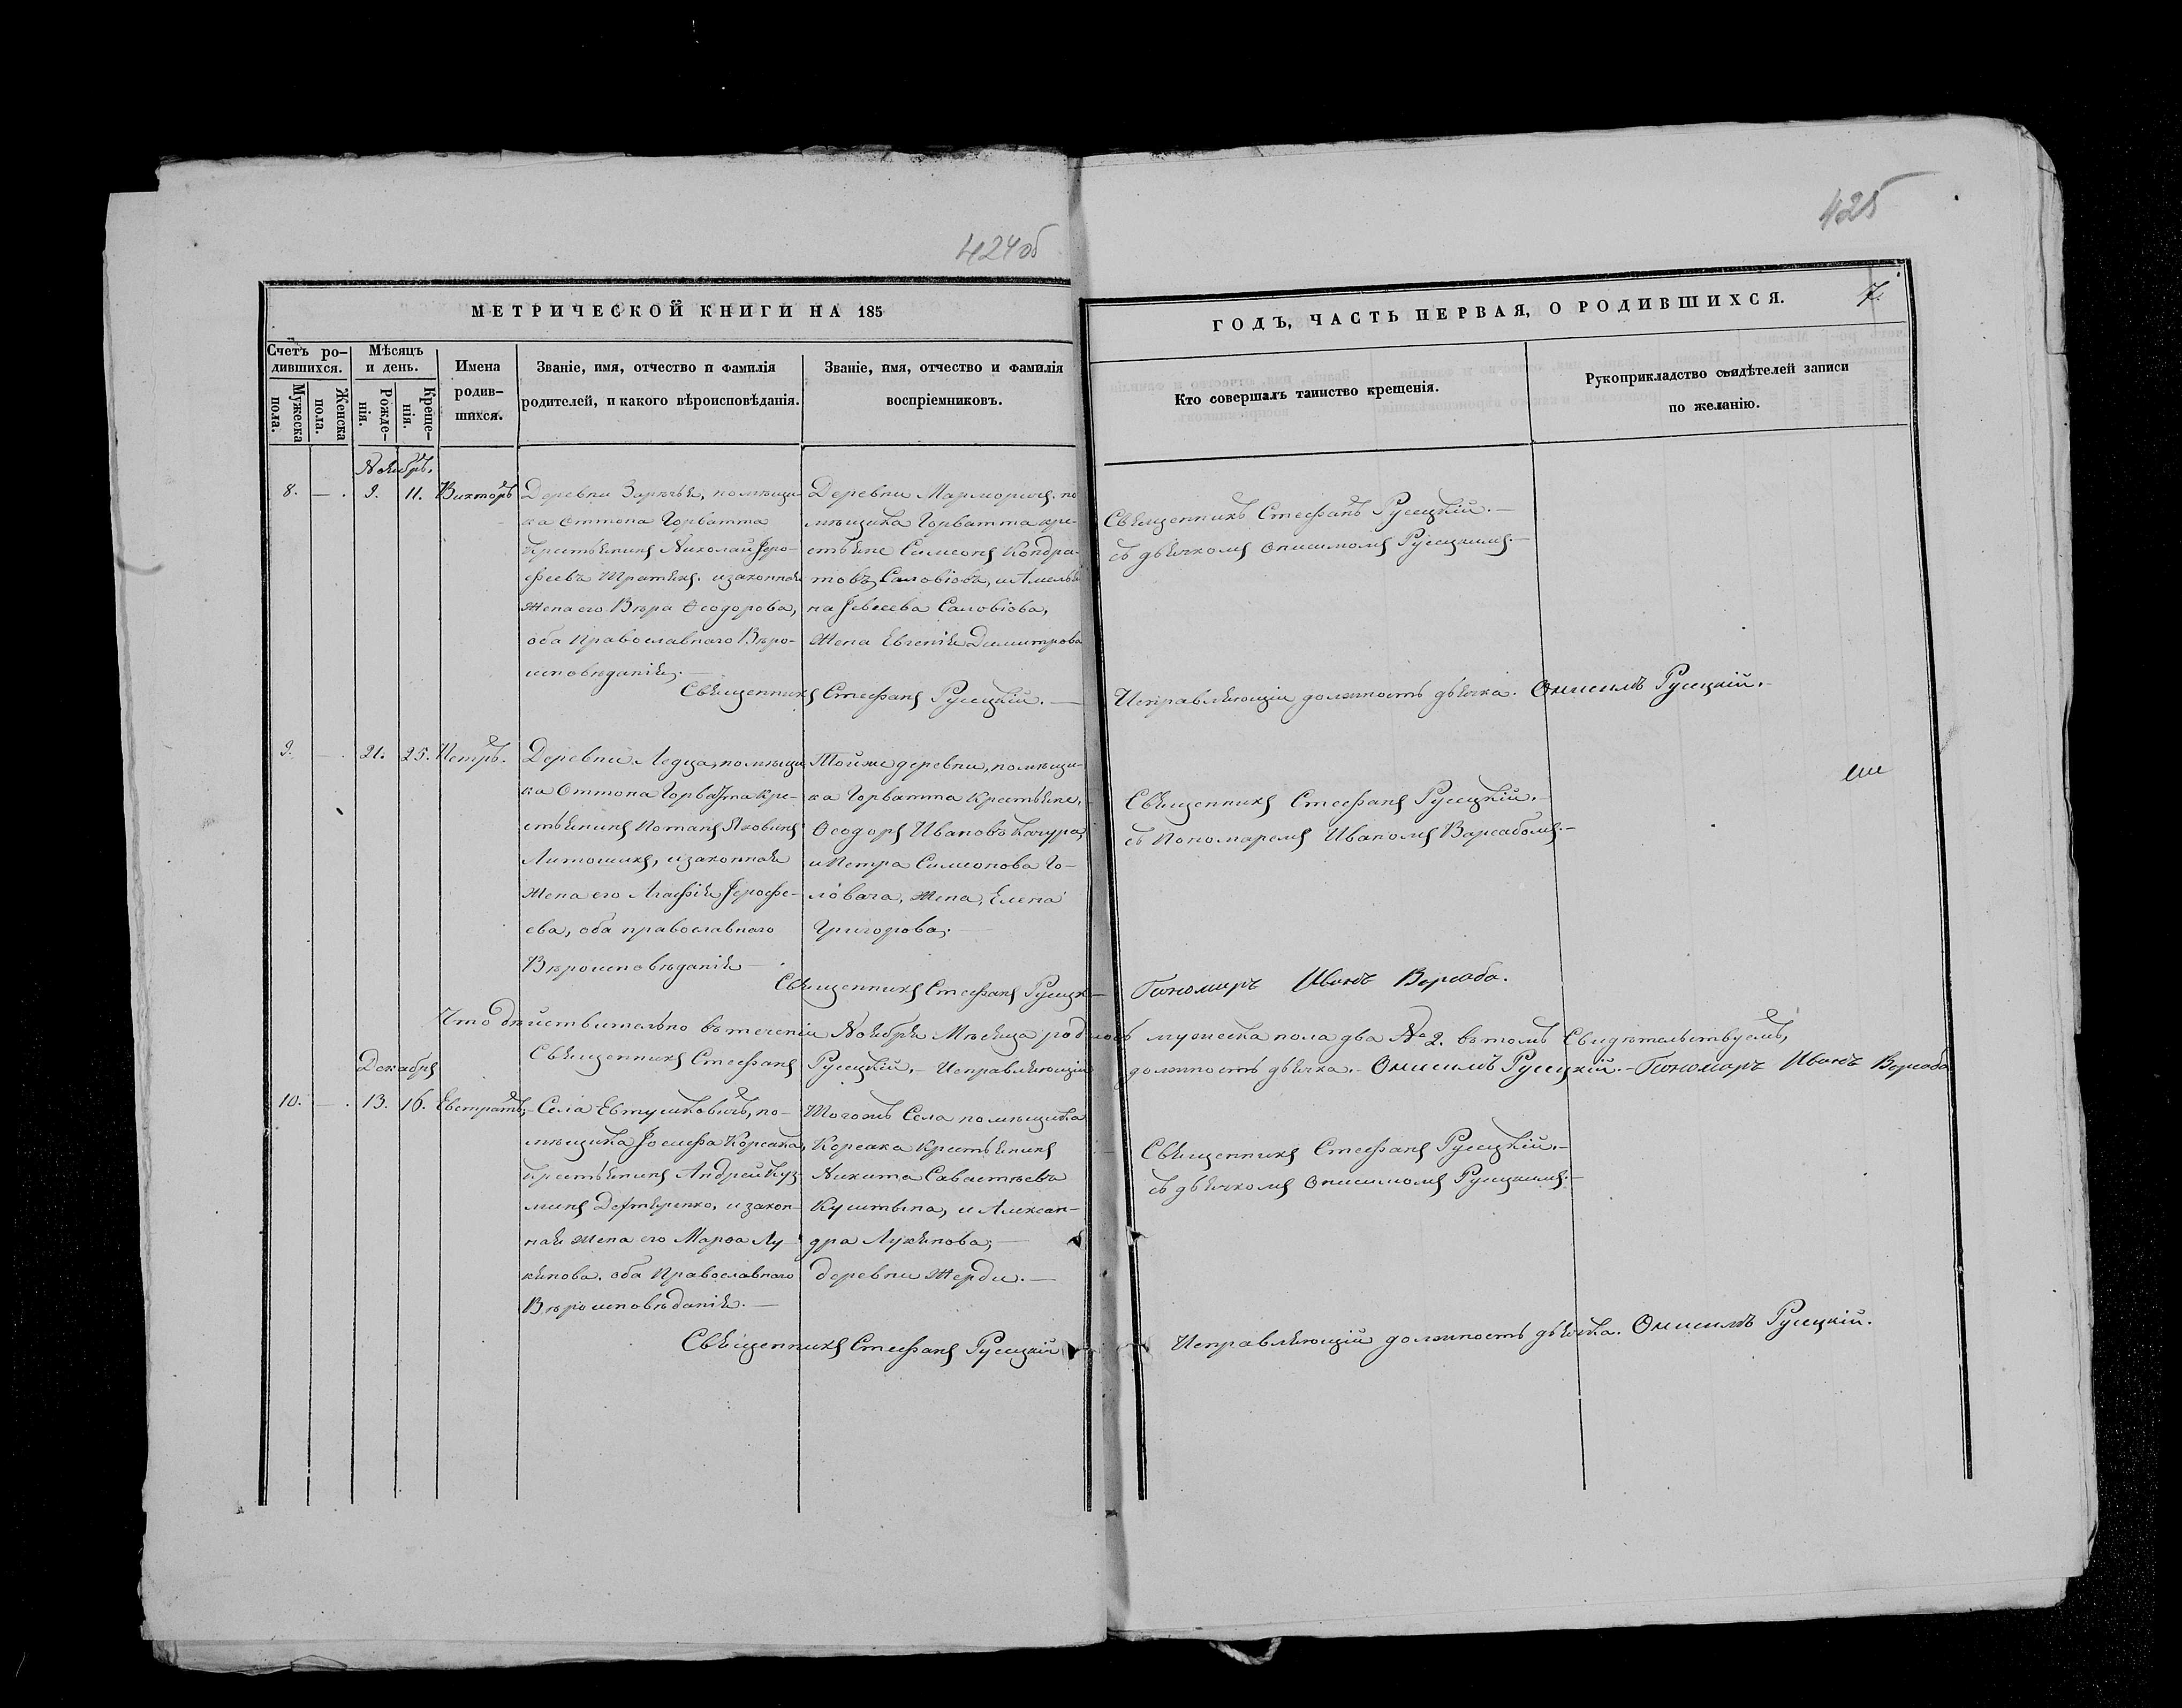 424 об
425
МЕТРИЧЕСКОЙ КНИГИ НА 185
ГОДЪ, ЧАСТЬ ПЕРВАЯ, О РОДИВШИХСЯ.
7.
Счетъ ро-
дившихся.
Мужеска
пола.
Женска
пола.
Мѣсяцъ
и день.
Рожде-
нія.
Креще-
нія.
Имена
родив-
шихся.
Званіе, имя, отчество и фамилія
родителей, и какого вѣроисповѣданія.
Званіе, имя, отчество и фамилія
воспріемниковъ.
Кто совершалъ таинство крещенія.
Рукоприкладство свидѣтелей записи
по желанію.
Ноябрь.
8. — . 9. 11. Викторъ
Деревни Зарѣчья, помѣщи-
ка Оттона Горватта
крестьянинъ Николай Іеро-
феевъ изаконная
жена его Вѣра Ѳеодорова,
оба Православнаго Вѣро-
исповѣданія. —
Деревни помѣщика Горватта кре-
стьяне Симеонъ Кондра-
товъ Саловіовъ,
на Іевсеева Саловіова,
жена Евгенія Димитрова
Священникъ Стефанъ Русецкій. —
Священникъ Стефанъ Русецкій. —
съ дьячкомъ Онисимомъ Русецкимъ. —
Исправляющій должность дьячка. Онисимъ Русецкій. —
9. — . 21. 25. Петръ.
Деревни Ледца, помѣщи-
ка Оттона Горватта кре-
стьянинъ Яковинъ
изаконная
жена его Агафія Іерофе-
ева, оба православнаго
Вѣроисповѣданія —
Тойже деревни, помѣщи-
ка Горватта крестьяне,
Ѳеодоръ Ивановъ Качура,
и Петра Симеонова Го-
ловача, жена, Елена
Григорова. —
Священникъ Стефанъ
Священникъ Стефанъ Русецкій. —
съ Пономаремъ Иваномъ Варсабомъ. —
Пономарь Иванъ Варсаба.
Что дѣйствительно въ теченіи Ноября Мѣсяца мужеска пола два № 2. въ томъ Свидѣтельствуемъ,
Священникъ Стефанъ Русецкій, — Исправляющій должность дьячка. — Онисимъ Русецкій. — Пономарь Иванъ Варсаба
Декабря
10. — . 13. 16. Евстратъ, —
Села Евтушковичъ, по-
мѣщика Іосифа Корсака,
крестьянинъ Андрей Куз-
минъ изакон-
ная жена его Марѳа Лу-
кянова. оба Православнаго
Вѣроисповѣданія. —
Тогожъ Села помѣщика
Корсака крестьянинъ
Никита Савастѣевъ
и Алексан-
дра Лукянова; —
деревни Жерди. —
Священникъ Стефанъ Русецкій
Священникъ Стефанъ Русецкій. —
съ дьячкомъ Онисимомъ Русецкимъ. —
Исправляющій должность дьячка. Онисимъ Русецкій.